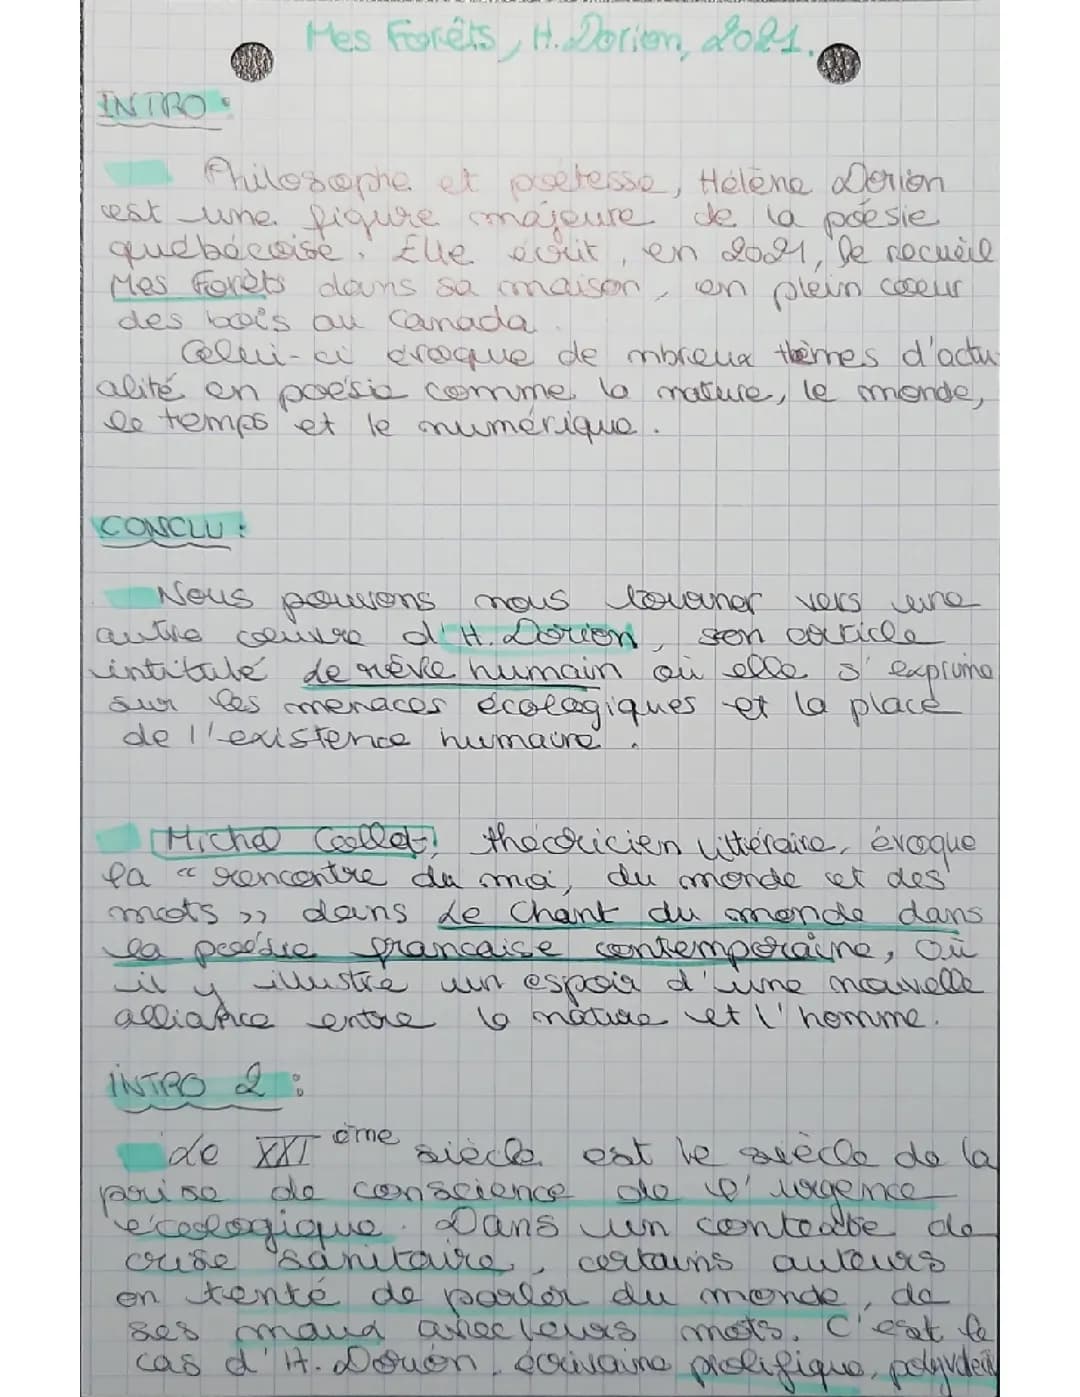 Mes Forêts, H. Dorion, 2021.
INTRO :
Philosophe et poétesse, Hélène Dorion
est une figure majeure de la poésie
québécoise. Elle écrit, en 2021, le recueil
Mes Forêts dans sa maison, en plein coeur
des bois au Canada.
Celui-ci évoque de mbreux thèmes d'actu
alité en poésie comme la nature, le monde,
le temps et le numérique.
CONCLU :
Nous pouvons nous tourner vers une
autre oeuvre d'H. Dorion, son article
intitulé de rêve humain où elle s'exprime
sur les menaces écologiques et la place
de l'existence humaine.
Michel Collot, théoricien littéraire, évoque
la « rencontre du moi, du monde et des
mots » dans Le Chant du monde dans
la poésie française contemporaine, où
il y illustre un espoir d'une nouvelle
alliance entre la nature et l'homme.
INTRO 2 :
Le XXI ème siècle est le siècle de la
prise de conscience de l'urgence
écologique. Dans un contexte de
crise sanitaire, certains auteurs
on tenté de parler du monde, de
ses maux avec leurs mots. C'est le
cas d'H. Dorion, écrivaine prolifique,